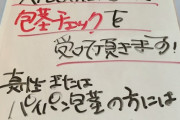 包茎チェックを
受けて頂きます!
真性または
パイパン包茎の方には